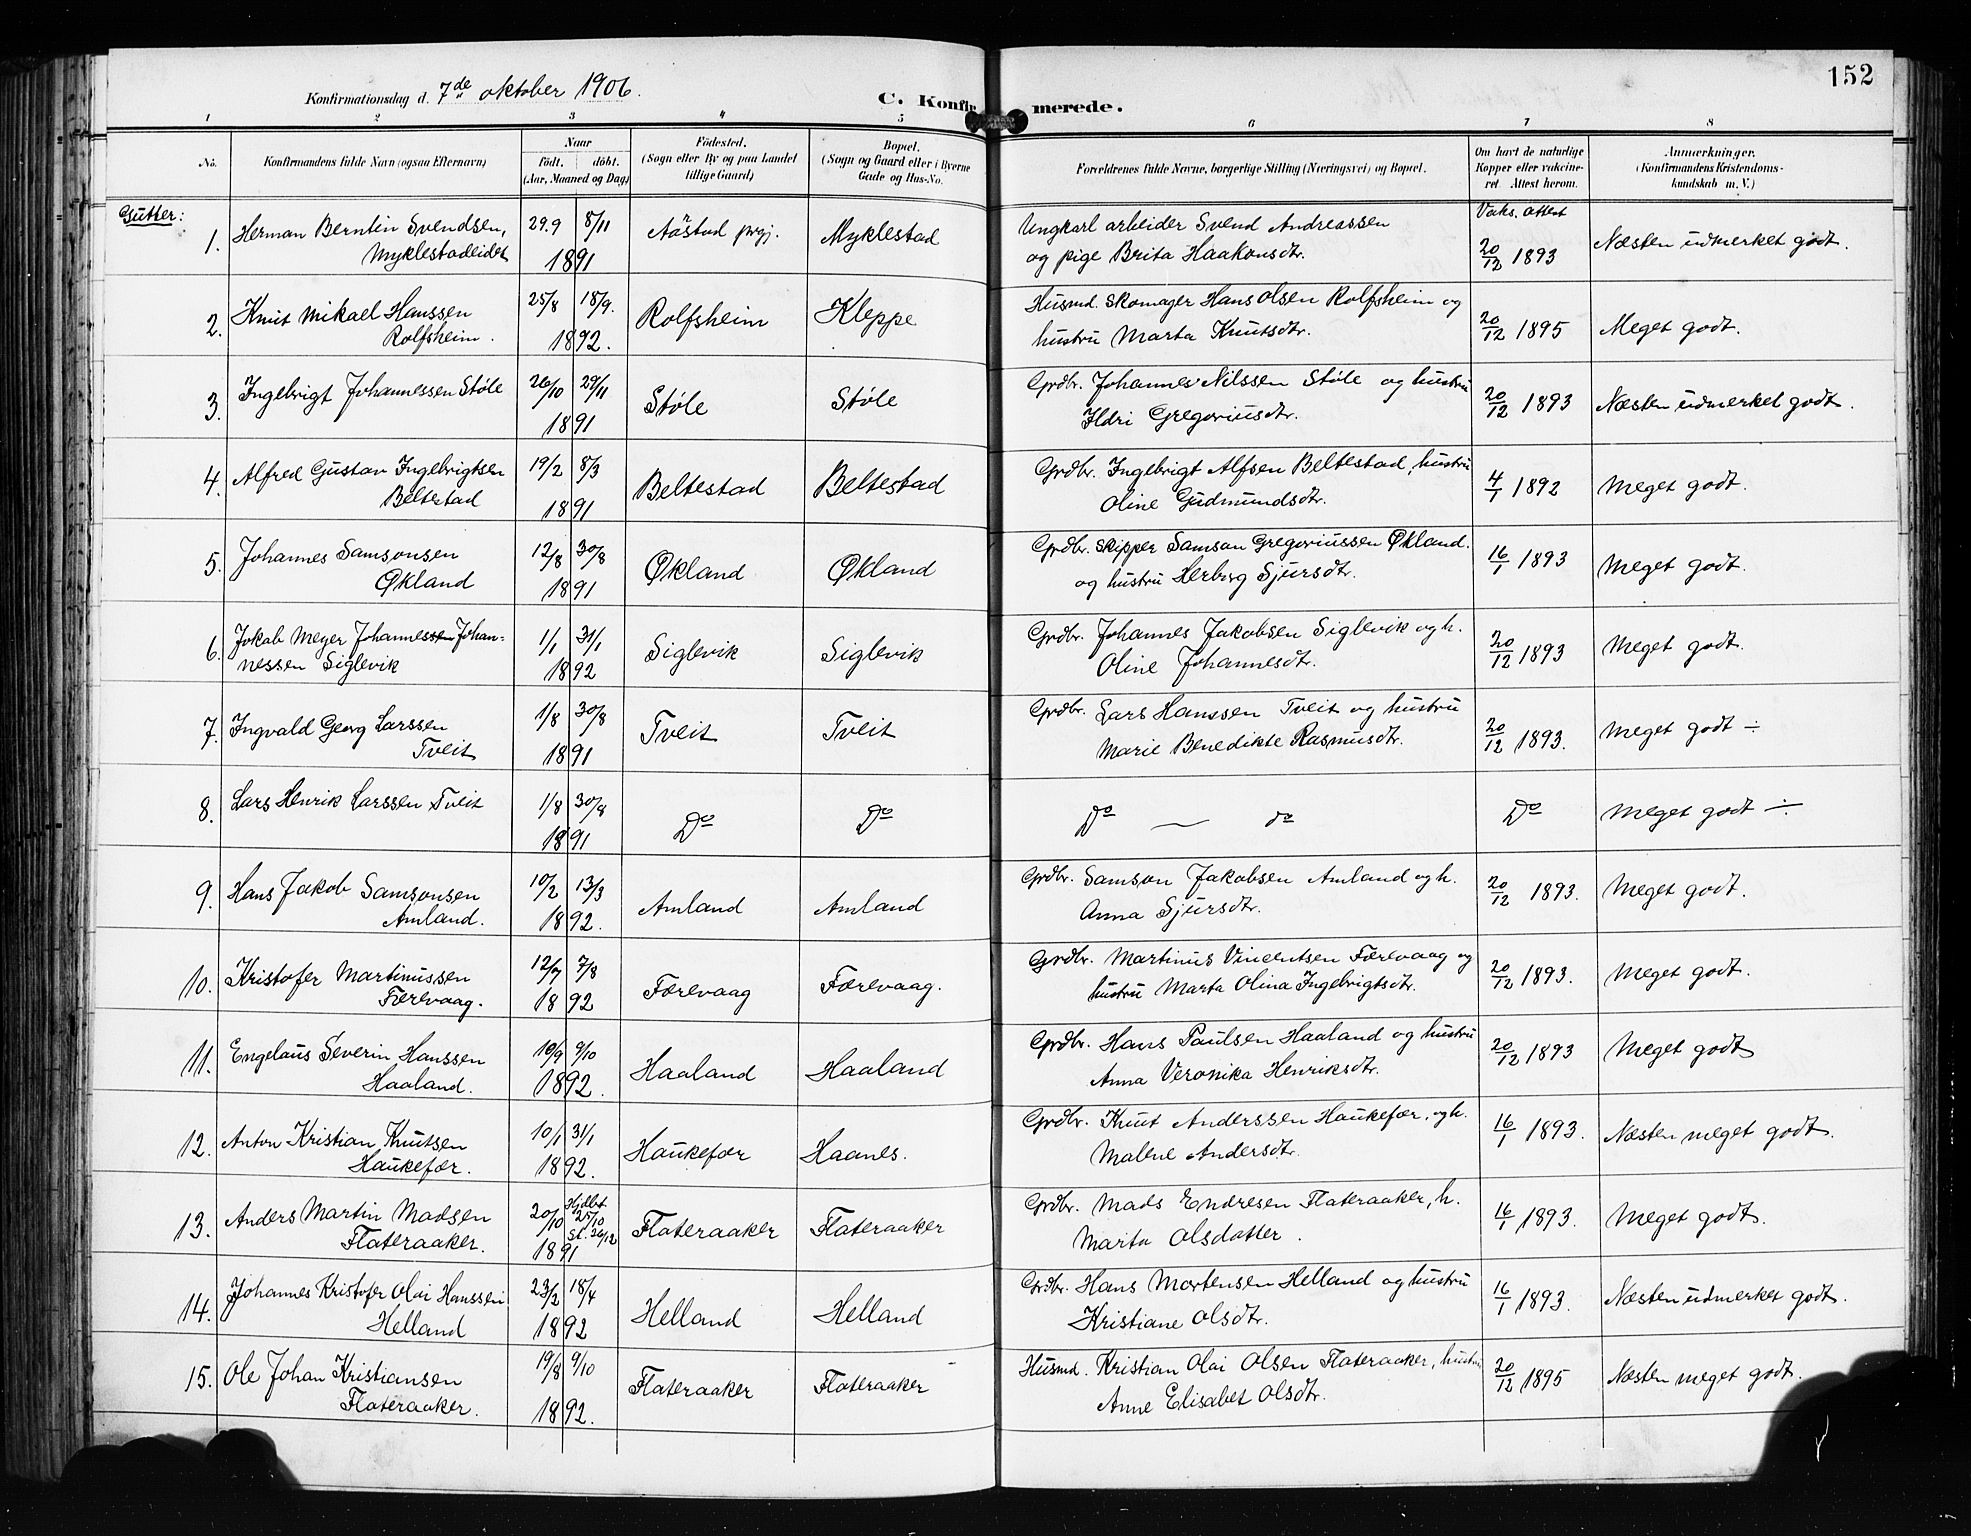 152
Konfirmationsdag d. 7de oktober 1906.
C. Konfirmerede.
1 2 3 4 5 6 7 8
No. Konfirmandens fulde Navn (ogsaa Efternavn) Naar födt. döbt. (Aar, Maaned og Dag) Födested. (Sogn eller By og paa Landet tillige Gaard) Bopæl. (Sogn og Gaard eller i Byerne Gade og Hus-No. Forældrenes fulde Navne, borgerlige Stilling (Næringsvei) og Bopæl. Om havt de naturlige Kopper eller vaccineret. Attest herom. Anmærkninger. (Konfirmandens Kristendomskundskab m. V.)
Gutter:
1. Herman Berntin Svendsen, 29.9 8/11 Myklestad Ungkarl arbeider Svend Andreassen Vaks. attest
Myklestadeidet 1891 og pige Brita Haakonsdtr. 20/12 1893 Næsten udmerket godt.
2. Knut Mikael Hanssen 25/8 18/9. Rolfsheim Kleppe Husmd. Skomager Hans Olsen Rolfsheim og
Rolfsheim. 1892. hustru Marta Knutsdtr. 20/12 1895 Meget godt.
3. Ingebrigt Johannessen Støle 26/10 29/11 Støle Støle Grdbr. Johannes Nilssen Støle og hustru
1891 Ildri Gregoriusdtr. 20/12 1893 Næsten udmerket godt.
4. Alfred Gustav Ingebrigtsen 19/2 8/3 Beltestad Beltestad Grdbr. Ingebrigt Alfsen Beltestad, hustru
Beltestad 1891 Oline Gudmundsdtr. 4/1 1892 Meget godt.
5. Johannes Samsonsen 12/8 30/8 Økland Økland Grdbr. Skipper Samson Gregoriussen Økland.
Økland 1891 og hustru Herborg Sjursdtr. 16/1 1893 Meget godt.
6. Jokab Meyer Johannessen Johan- 1/1 31/1 Siglevik Siglevik Grdbr. Johannes Jakobsen Siglevik og h.
nessen Siglevik 1892 Oline Johannesdtr. 20/12 1893 Meget godt.
7. Ingvald Georg Larssen 1/8 30/8 Tveit Tveit Grdbr. Lars Hanssen Tveit og hustru
Tveit 1891 Marie Benedikte Rasmusdtr. 20/12 1893. Meget godt ÷
8. Lars Henrik Larssen Tveit 1/8 30/8 Do Do Do — do Do Meget godt ÷
1891
9. Hans Jakob Samsonsen 10/2 13/3 Amland Amland Grdbr. Samson Jakobsen Amland og h.
Amland. 1892. Anna Sjursdtr. 20/12 1893. Meget godt.
10. Kristofer Martinussen 12/7 7/8 Færevaag Færevaag. Grdbr. Martinus Vincentsen Færevaag og
Færevaag. 1892 hustru Marta Olina Ingebrigtsdtr. 20/12 1893. Meget godt.
11. Engelaus Severin Hanssen 10/9 9/10 Haaland Haaland Grdbr. Hans Paulsen Haaland og hustru
Haaland. 1892. Anna Veronika Henriksdtr. 20/12 1893 Meget godt
12. Anton Kristian Knutsen 10/1 31/1 Haukefær Haanes. Grdbr. Knut Anderssen Haukefær, og h.
Haukefær. 1892. Malene Andersdtr. 16/1 1893. Næsten meget godt.
13. Anders Martin Madsen 20/10 Hjdbt 25/10 St. 26/12 Flateraaker Flateraaker Grdbr. Mads Endresen Flateraaker, h.
Flateraaker. 1891 Marta Olsdatter. 16/1 1893. Meget godt.
14. Johannes Kristofer Olai Hanssen 23/2 18/4 Helland Helland Grdbr. Hans Mortensen Helland og hustru
Helland 1892 Kristiane Olsdtr. 16/1 1893. Næsten udmerket godt.
15. Ole Johan Kristiansen 19/8 9/10 Flateraaker Flateraaker Husmd. Kristian Olai Olsen Flateraaker, hustru
Flateraaker. 1892. Anne Elisabet Olsdtr. 20/12 1895 Næsten meget godt.